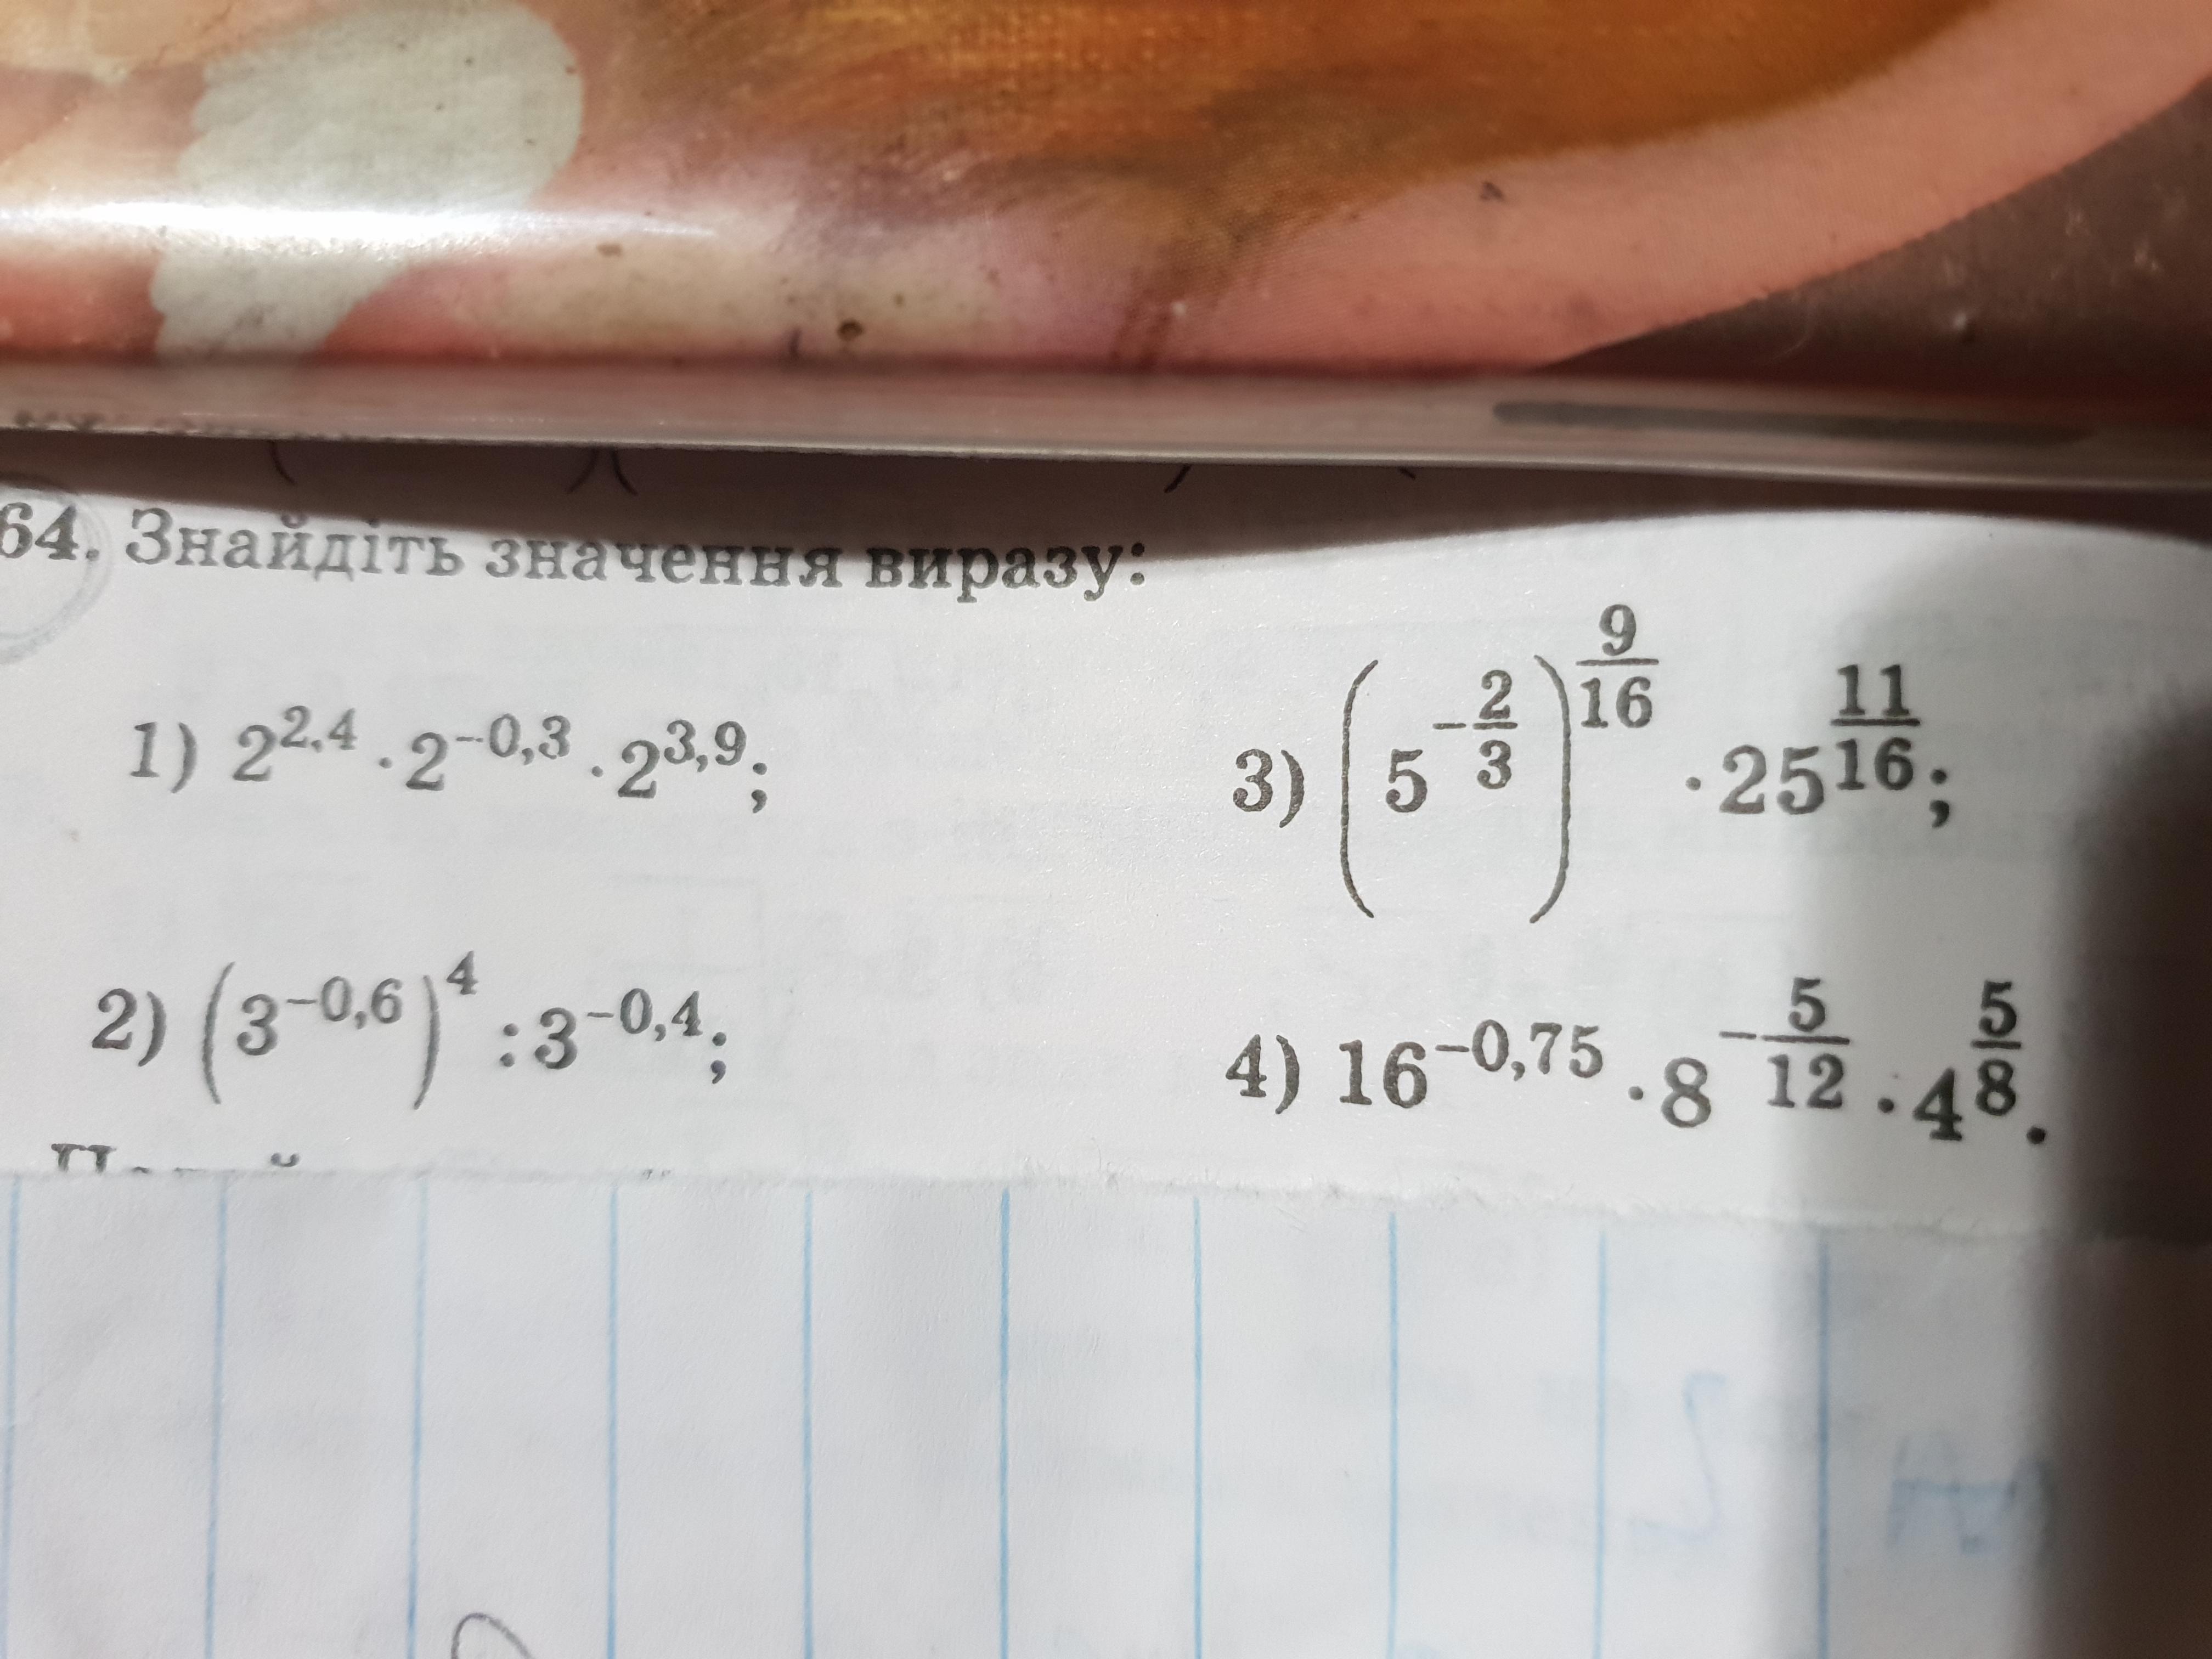 64. Знайдіть значення виразу:
1) 2^{2,4} · 2^{−0,3} · 2^{3,9};
3) (5^{−\frac{2}{3}})^{\frac{9}{16}} · 25^{\frac{11}{16}};
2) (3^{−0,6})^4 : 3^{−0,4};
4) 16^{−0,75} · 8^{−\frac{5}{12}} · 4^{\frac{5}{8}}.